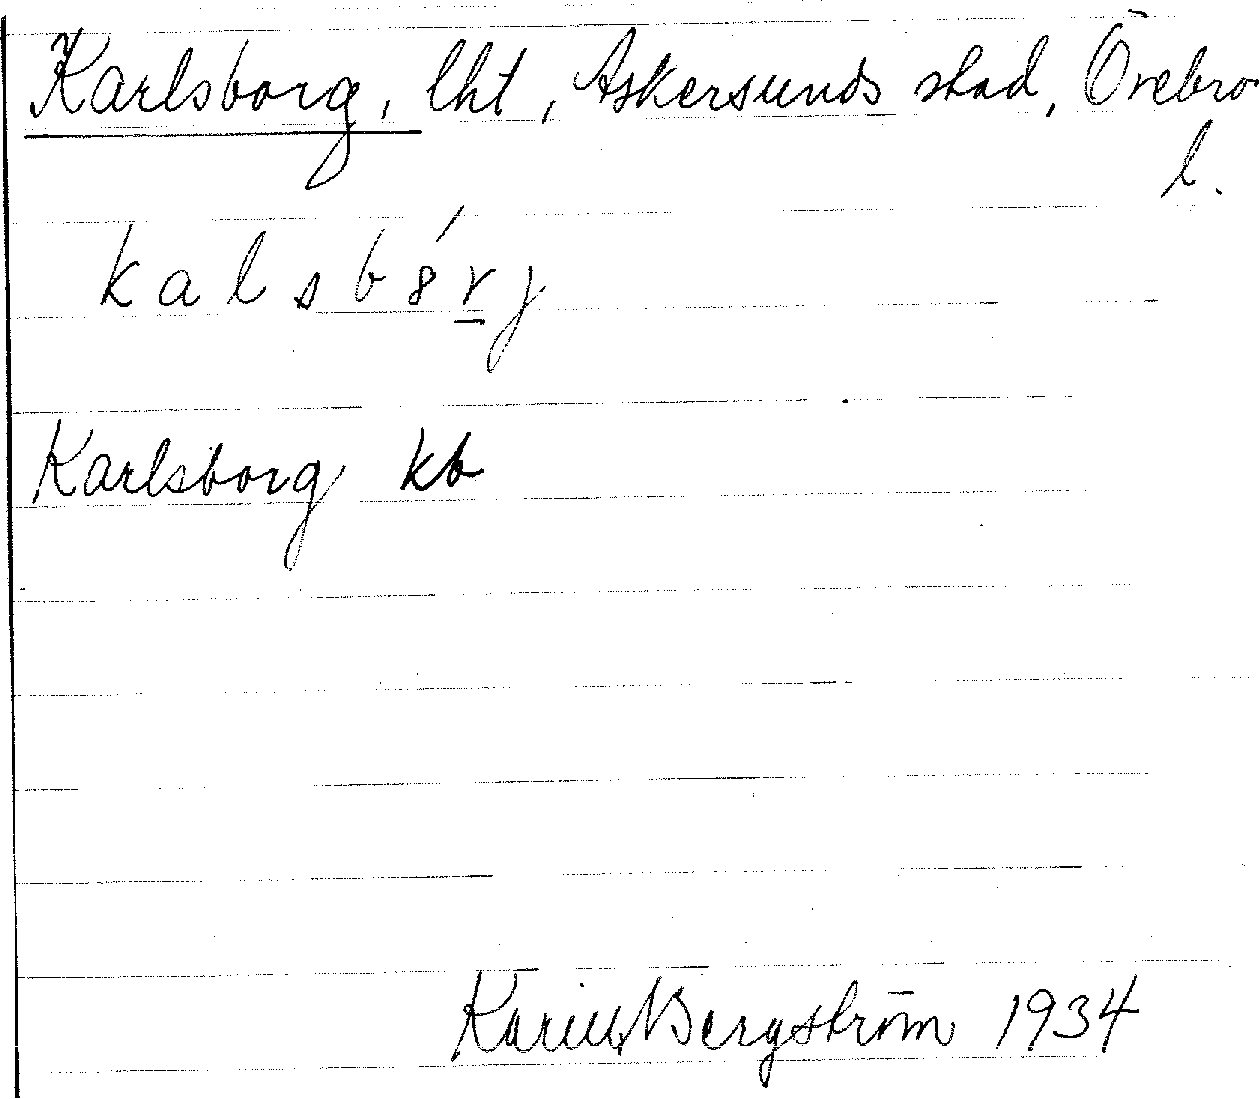 Karlsborg, lht, Askersunds stad, Örebro
l.
kalsb8́r̲j
Karlsborg kb
Karin Bergström 1934